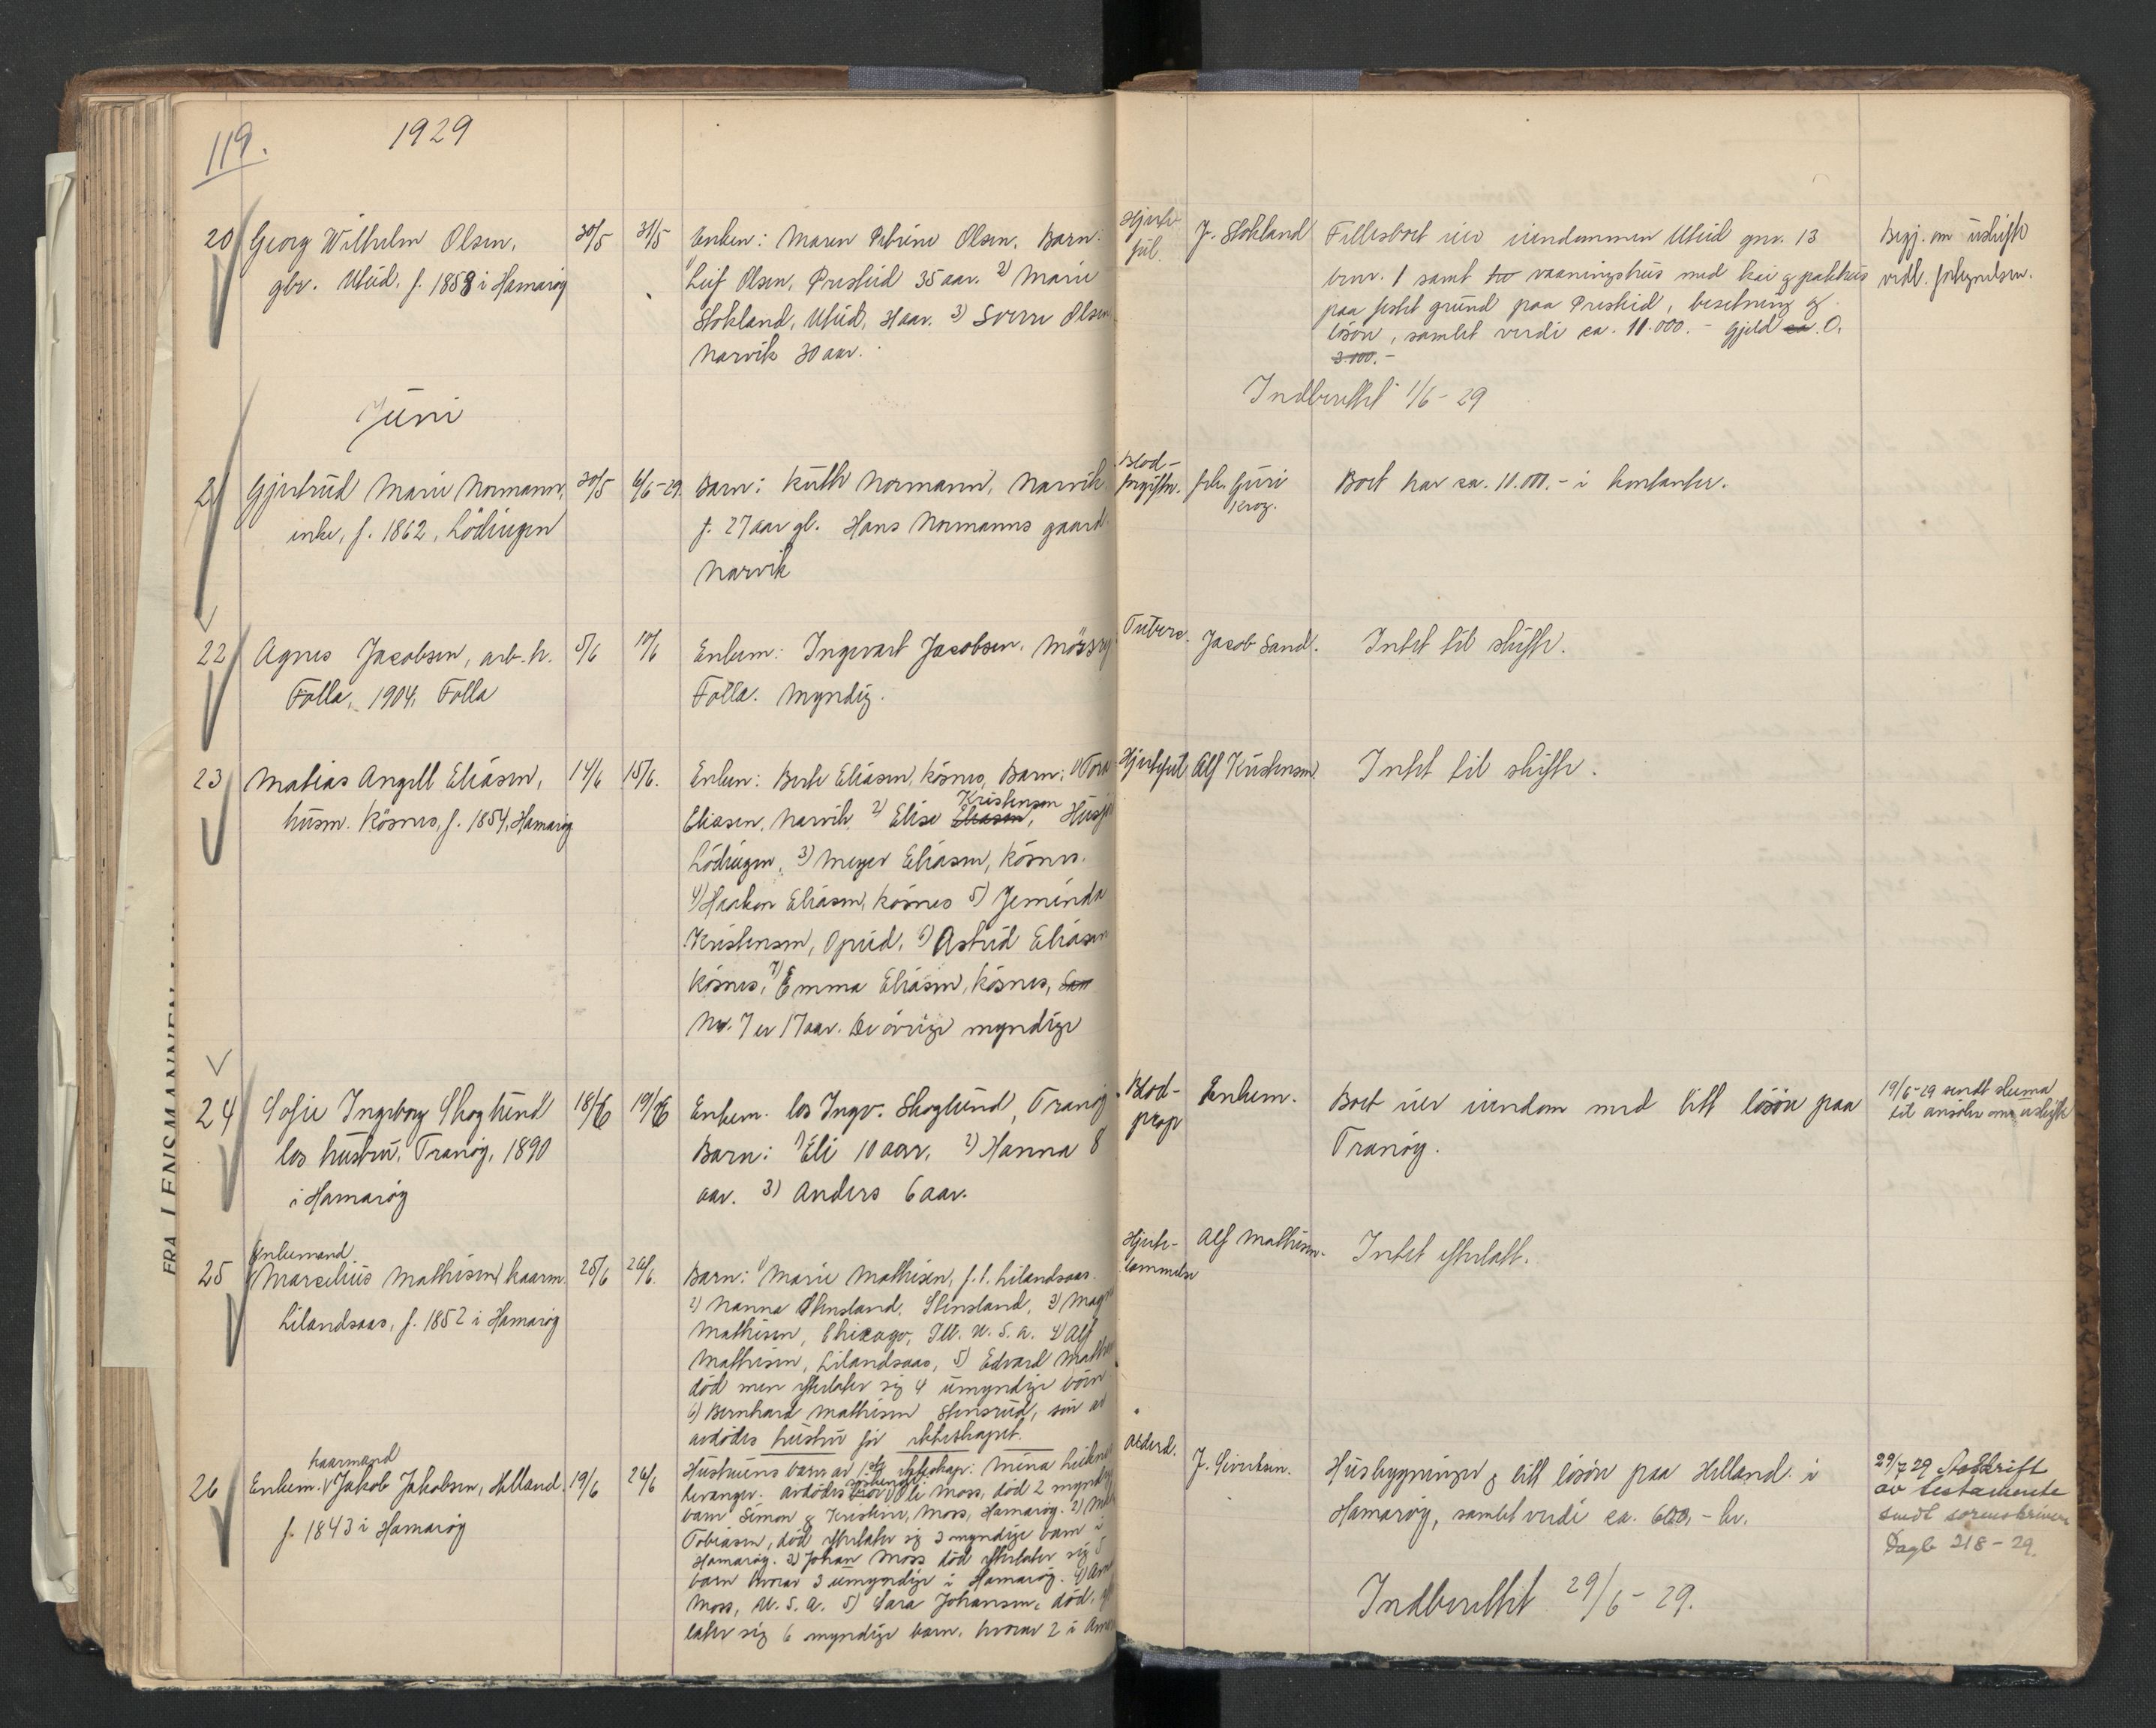 119.
1929
20 Georg Wilhelm Olsen, 30/5 31/5 Enken: Maren Petrine Olsen. Barn:
gbr. Uteid, f. 1858 i Hamarøy
1) Leif Olsen, Presteid 35 aar. 2) Marie
Stokland, Uteid, 31 aar. 3) Sverre Olsen
Narvik 30 aar.
Hjertefeil. J. Stokland
Fællesboet eier eiendommen Uteid gnr. 13
bnr. 1 samt to vaaningshus med kai & pakhus
paa festet grund paa Presteid, besetning og
løsøre, samlet verdi ca. 11.000.- Gjeld ca. 0.
3.000.-
Begj. om uskifte
vedl. fortegnelsen.
Indberettet 1/6-29
Juni
21 Gjertrud Marie Normann, 30/5 4/6-29. Barn: Käthe Normann, Narvik
enke, f. 1862, Lödingen
f. 27 aar gl. Hans Normanns gaard
Narvik
Blodforgiftn. frk. Guri Krog.
Boet har ca. 11.000.- i kontanter.
22 Agnes Jacobsen, arb.h. 5/6 10/6 Enkem: Ingvart Jacobsen, Mörsry
Folla, 1904, Folla
Folla. Myndig.
Tuberc. Jacob Sand. Intet til skifte.
23 Matias Angell Eliasen, 14/6 15/6. Enken: Berte Eliasen, Kösnes, Barn: 1) Tora
husm. Kösnes, f. 1854, Hamarøy
Eliasen, Narvik, 2) Elise Eliasen Kristensen,
Lödingen, 3) Meyer Eliasen, Kösnes.
4) Haakon Eliasen, Kösnes 5) Jeminda
Kristensen, Opeid, 6) Astrid Eliasen
Kösnes, 7) Emma Eliasen, Kösnes,
Nr. 7 er 17 aar. De övrige myndige
Hjertefeil Alf Kristensen. Intet til skifte.
24 Sofie Ingeborg Skoglund 18/6 19/6 Enkem. los Ingv. Skoglund, Tranøy
los hustru, Tranøy, 1890
i Hamarøy
Barn: 1) Eli 10 aar, 2) Hanna 8
aar. 3) Anders 6 aar.
Blodprop Enkem. Boet eier eiendom med litt løsøre paa
Tranøy.
19/6-29 sendt skema
til ansökn om uskifte
25 Enkemand
Marselius Mathisen kaarm. 25/6 26/6. Barn: 1) Marie Mathisen, f. l. Lilandsaas.
Lilandsaas, f. 1852 i Hamarøy
2) Nanna Stensland, Stensland, 3)
Mathisen, Chicago, Ill. U.S.A. 4) Alf
Mathisen, Lilandsaas, 5) Edvard
död men efterlater sig 4 umyndige börn
6) Bernhard Mathisen Stensrud, sön av
avdödes hustru för ekteskapet.
Hjertelammelse Alf Mathisen. Intet efterlatt.
26 kaarmand
Enkem. Jakob Jakobsen, Helland. 19/6 26/6
f. 1843 i Hamarøy
Hustruens barn av 1ste ekteskap: Mina
Levanger. Avdödes 1) Ole Moss, död 2 myndige
barn Simon & Kristine, Moss, Hamarøy. 2)
Tobiasen, död efterlater sig 3 myndige barn i
Hamarøy. 3) Johan Moss död efterlater sig 5
barn hvorav 3 umyndige i Hamarøy. 4)
Moss, U.S.A. 5) Sara Johansen, död,
later sig 6 myndige barn, hvorav 2 i
Alderd. J. Sivertsen.
Husbygninger & litt løsøre paa Helland i
Hamarøy, samlet verdi ca. 600,- kr.
29/7 29 Avskrift
av testamente
sendt sorenskriveren
Dagb 218-29.
Indberettet 29/6-29.
FRA LENSMANNEN